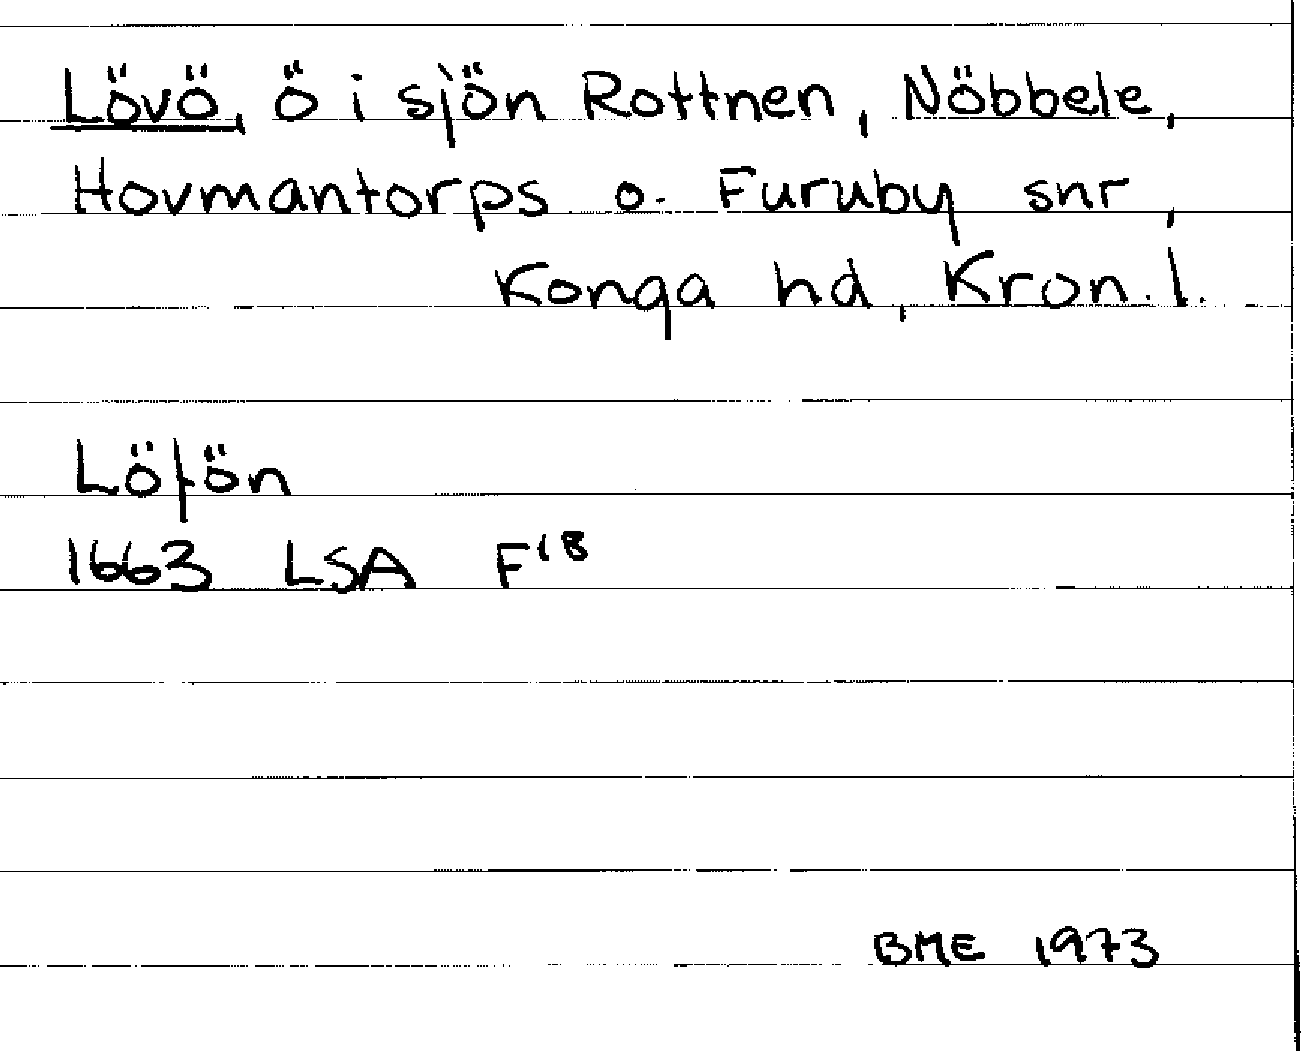 Lövö, ö i sjön Rottnen, Nöbbele,
Hovmantorps o. Furuby snr,
Konga hd, Kron. l.
Löfön
1663 LSA F18
BME 1973